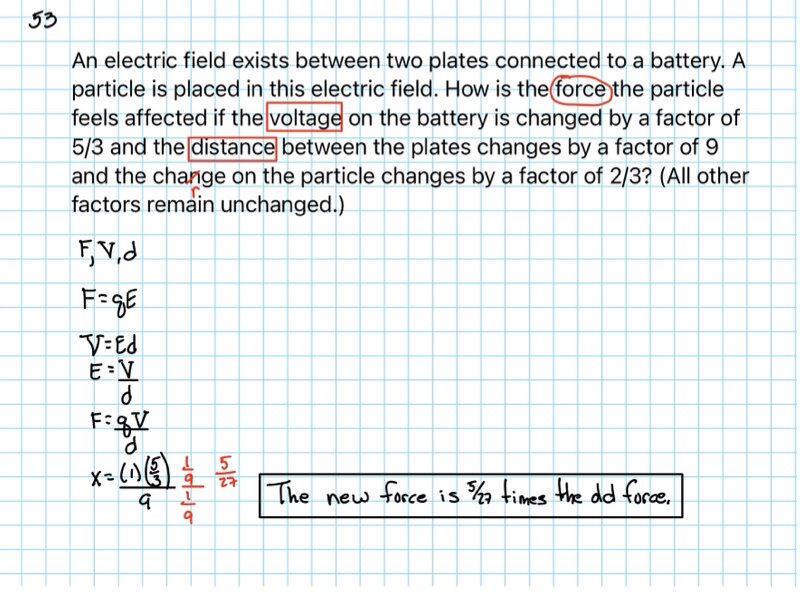 53
An electric field exists between two plates connected to a battery. A
particle is placed in this electric field. How is the force the particle
feels affected if the voltage on the battery is changed by a factor of
5/3 and the distance between the plates changes by a factor of 9
and the change on the particle changes by a factor of 2/3? (All other
r
factors remain unchanged.)
F, V, d
F=qE
V=Ed
E=V/d
F=qV/d
x=(1)(5/3)/9 1/9 / 1/9 5/27
The new force is 5/27 times the old force.